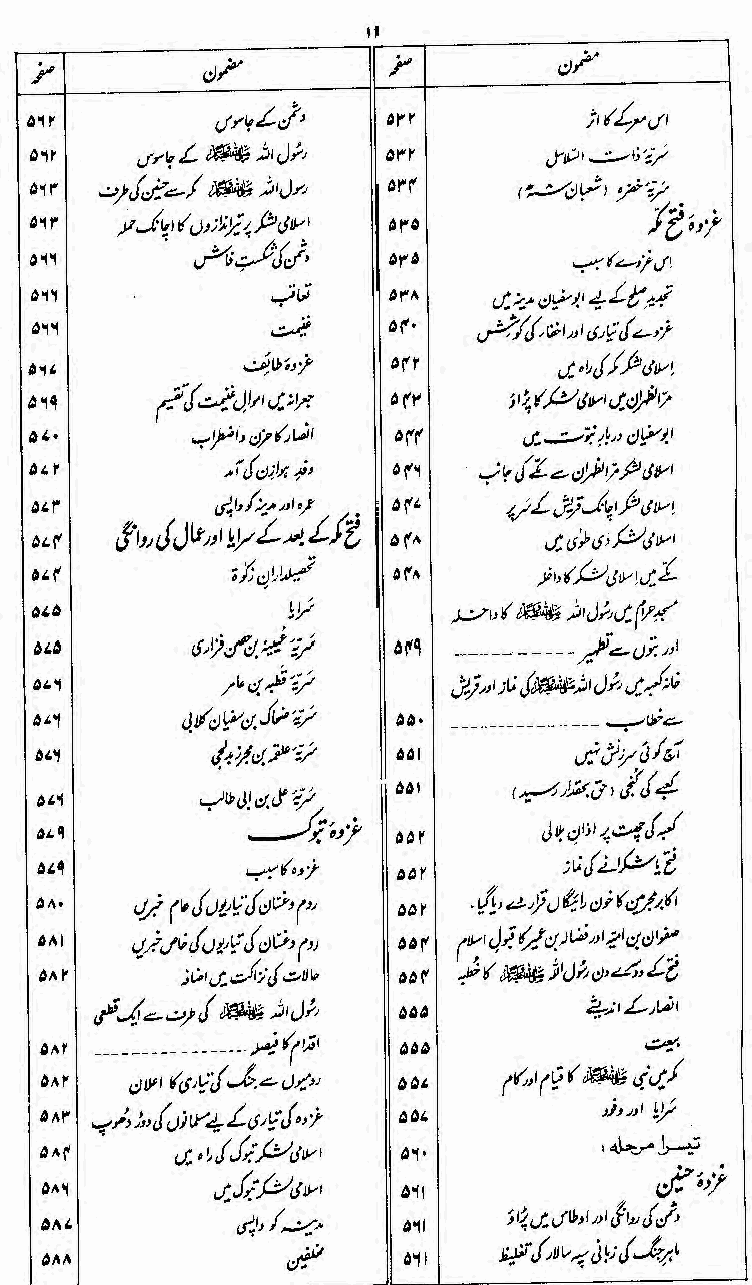 ۱۶
مضمون صفحہ
اس معرکے کا اثر ۵۳۲
سَریّۂ ذات السّلاسل ۵۳۲
سَریّۂ خضرہ (شعبان ۸ھ) ۵۳۴
غزوۂ فتح مکّہ ۵۳۵
اِس غزوے کا سبب ۵۳۵
تجدیدِ صلح کے لیے ابوسفیان مدینہ میں ۵۳۸
غزوے کی تیاری اور اخفار کی کوشش ۵۴۰
اِسلامی لشکر مکہ کی راہ میں ۵۴۲
مرّ الظہران میں اسلامی لشکر کا پڑاؤ ۵۴۳
ابوسفیان دربارِ نبوّت میں ۵۴۴
اسلامی لشکر مرّ الظہران سے مکّے کی جانب ۵۴۶
اِسلامی لشکر اچانک قریش کے سَر پر ۵۴۷
اسلامی لشکر ذی طویٰ میں ۵۴۸
مکّے میں اِسلامی لشکر کا داخلہ ۵۴۸
مسجدِ حرام میں رسُول اللہ ﷺ کا داخلہ
اور بتوں سے تطہیر ۵۴۹
خانہ کعبہ میں رسُول اللہ ﷺ کی نماز اور قریش
سے خطاب ۵۵۰
آج کوئی سرزنش نہیں ۵۵۱
کعبے کی کُنجی (حق بحقدار رسید) ۵۵۱
کعبہ کی چھت پر اذانِ بلالی ۵۵۲
فتح یا شکرانے کی نماز ۵۵۲
اکابر مجرمین کا خون رائیگاں قرار دے دیا گیا۔ ۵۵۲
صفوان بن امیّہ اور فضالہ بن عمیر کا قبولِ اسلام ۵۵۴
فتح کے دوسرے دن رسُول اللہ ﷺ کا خُطبہ ۵۵۴
انصار کے اندیشے ۵۵۵
بیعت ۵۵۵
مکہ میں نبی ﷺ کا قیام اور کام ۵۵۷
سَرایا اور وفود ۵۵۷
تیسرا مرحلہ: ۵۶۰
غزوۂ حنین ۵۶۱
دشمن کی روانگی اور اوطاس میں پڑاؤ ۵۶۱
ماہرِ جنگ کی زبانی سپہ سالار کی تغلیظ ۵۶۱
مضمون صفحہ
دشمن کے جاسوس ۵۶۲
رسُول اللہ ﷺ کے جاسوس ۵۶۲
رسول اللہ ﷺ مکہ سے حنین کی طرف ۵۶۳
اسلامی لشکر پر تیراندازوں کا اچانک حملہ ۵۶۳
دشمن کی شکستِ فاش ۵۶۶
تعاقب ۵۶۶
غنیمت ۵۶۶
غزوۂ طائف ۵۶۷
جعرانہ میں اموالِ غنیمت کی تقسیم ۵۶۹
انصار کا حزن و اضطراب ۵۷۰
وفدِ ہوازن کی آمد ۵۷۲
عمرہ اور مدینہ کو واپسی ۵۷۳
فتح مکہ کے بعد کے سرایا اور عمال کی روانگی ۵۷۴
تحصیلدارانِ زکوٰۃ ۵۷۴
سَرایا ۵۷۵
سَریّۂ عُیینہ بن حصن فزاری ۵۷۵
سَریّۂ قطبہ بن عامر ۵۷۶
سَریّۂ ضحاک بن سفیان کلابی ۵۷۶
سَریّۂ علقمہ بن مجرز مدلجی ۵۷۶
سَریّۂ علی بن ابی طالب ۵۷۶
غزوۂ تبوک ۵۷۹
غزوہ کا سبب ۵۷۹
روم و غسّان کی تیاریوں کی عام خبریں ۵۸۰
روم و غسّان کی تیاریوں کی خاص خبریں ۵۸۱
حالات کی نزاکت میں اضافہ ۵۸۲
رسُول اللہ ﷺ کی طرف سے ایک قطعی
اقدام کا فیصلہ ۵۸۲
رومیوں سے جنگ کی تیاری کا اعلان ۵۸۲
غزوہ کی تیاری کے لیے مسلمانوں کی دوڑ دھُوپ ۵۸۳
اسلامی لشکر تبوک کی راہ میں ۵۸۴
اسلامی لشکر تبوک میں ۵۸۶
مدینہ کو واپسی ۵۸۷
مخلفین ۵۸۸